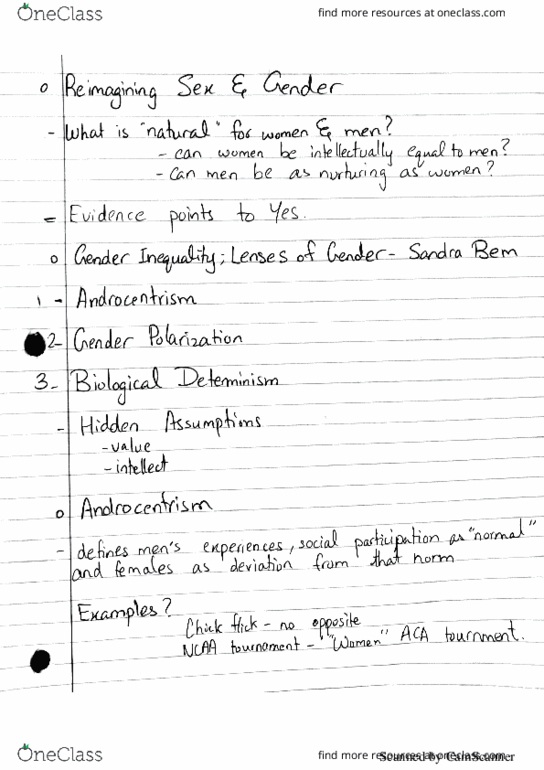 OneClass
find more resources at oneclass.com
o Reimagining Sex & Gender
- What is "natural" for women & men?
- can women be intellectually equal to men?
- Can men be as nurturing as women?
= Evidence points to Yes.
o Gender Inequality; Lenses of Gender - Sandra Bem
1 - Androcentrism
2- Gender Polarization
3- Biological Determinism
- Hidden Assumptions
- value
- intellect
o Androcentrism
- defines men's experiences, social participation as "normal"
and females as deviation from that norm
Examples?
Chick flick - no opposite
NCAA tournament - "Women" ACA tournment.
OneClass
find more resources at oneclass.com
Scanned by CamScanner